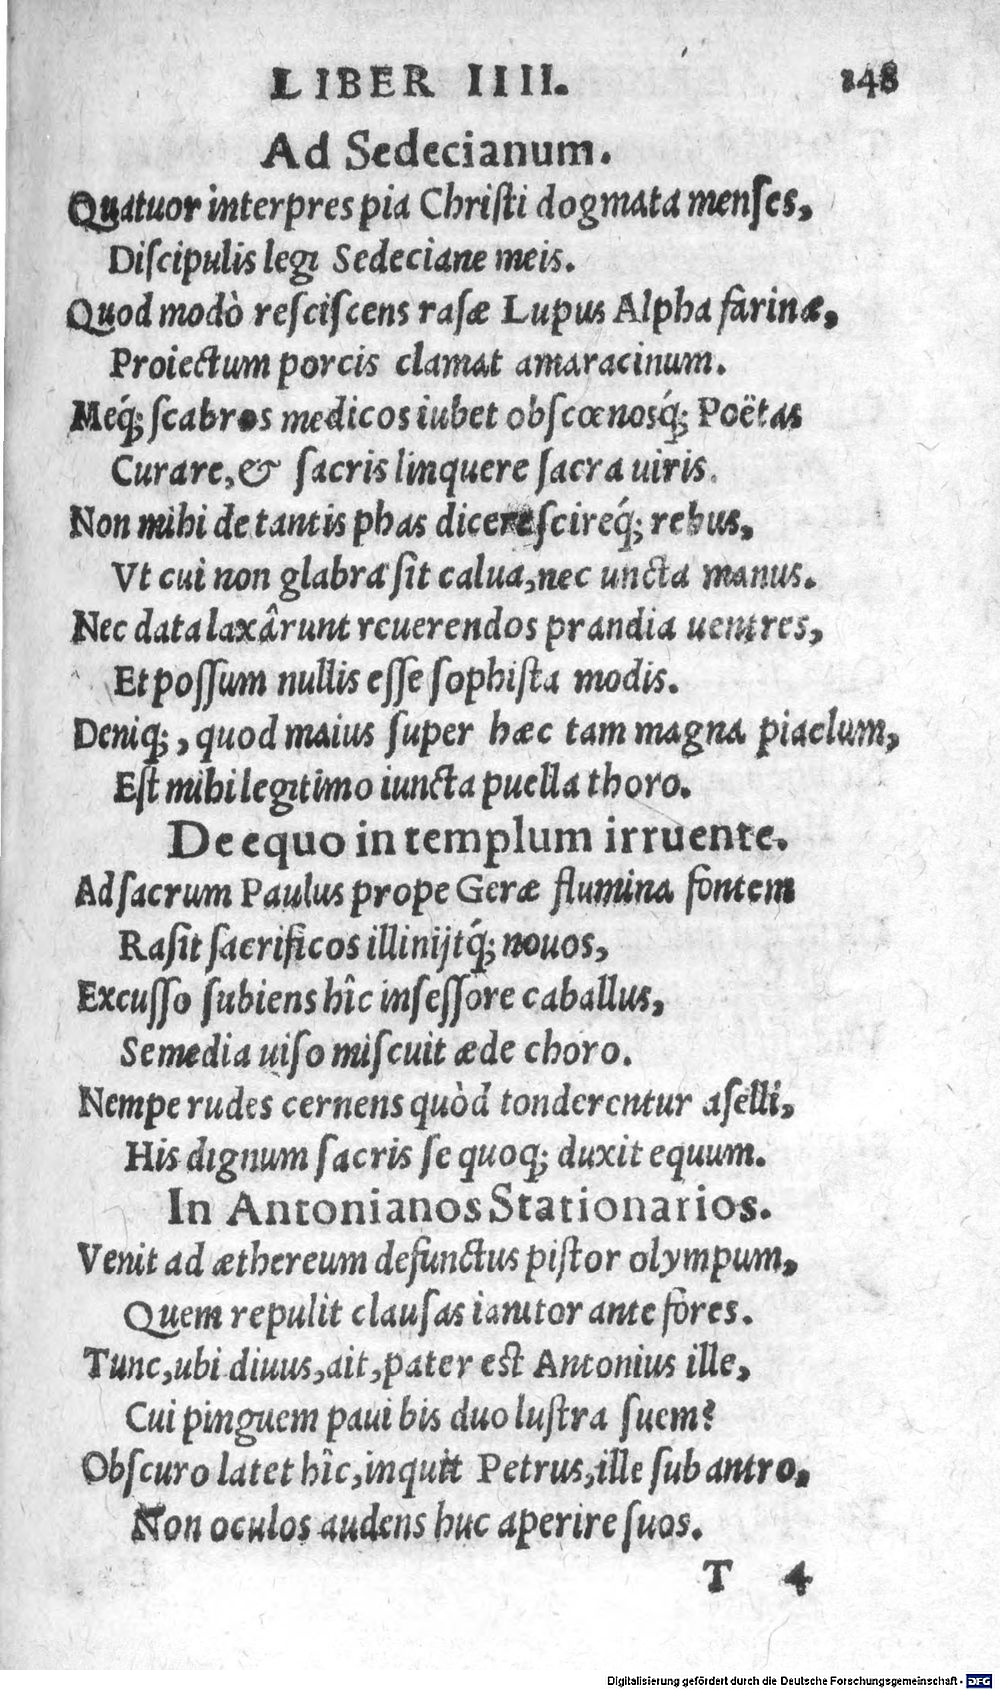 LIBER IIII. 248
Ad Sedecianum.
Quatuor interpres pia Christi dogmata menses,
Discipulis legi Sedeciane meis.
Quod modò resciscens rasæ Lupus Alpha farinæ,
Proiectum porcis clamat amaracinum.
Meq́; scabros medicos iubet obscœnosq́; Poëtas
Curare, & sacris linquere sacra uiris.
Non mihi de tantis phas dicere scireq́; rebus,
Vt cui non glabra sit calua, nec uncta manus.
Nec data laxârunt reuerendos prandia uentres,
Et possum nullis esse sophista modis.
Deniq;, quod maius super hæc tam magna piaclum,
Est mihi legitimo iuncta puella thoro.
De equo in templum irruente.
Ad sacrum Paulus prope Geræ flumina fontem
Rasit sacrificos illinijtq́; nouos,
Excusso subiens hîc insessore caballus,
Se media uiso miscuit æde choro.
Nempe rudes cernens quòd tonderentur aselli,
His dignum sacris se quoq; duxit equum.
In Antonianos Stationarios.
Venit ad æthereum defunctus pistor olympum,
Quem repulit clausas ianitor ante fores.
Tunc, ubi diuus, ait, pater est Antonius ille,
Cui pinguem paui bis duo lustra suem?
Obscuro latet hîc, inquit Petrus, ille sub antro,
Non oculos audens huc aperire suos.
T 4
Digitalisierung gefördert durch die Deutsche Forschungsgemeinschaft - DFG